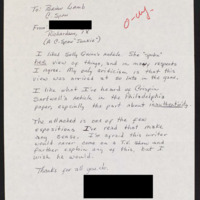 To: Brian Lamb
C-Span
From
Richardson, TX
(A C-Span "Junkie")
O-kay.
I liked Sally Quinn's article. The "yuks"
view of things, and in many respects
I agree. My only criticism is that this
view was arrived at so late in the game.
I like what I've heard of Crispin
Sartwell's article in the Philadelphia
papers, especially the part about inauthenticity.
The attached is one of the few
expositions I've read that make
any sense. I'm afraid this writer
would never come on a TV show and
further explain any of this, but I
wish he would.
Thanks for all you do.